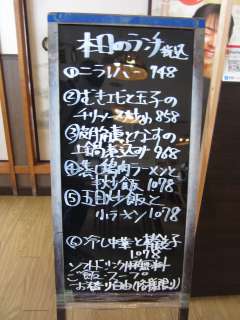 本日のランチ 税込
①ニラレバー 748
②むきエビと玉子の
チリソース炒め 858
③豚角煮となすの
土鍋煮込み 968
④鶏肉ラーメンと
半炒飯 1078
⑤五目炒飯と
小ラーメン 1078
⑥冷し中華と餃子
1078
ソフトドリンク1杯無料
ご飯・スープ
お替り自由